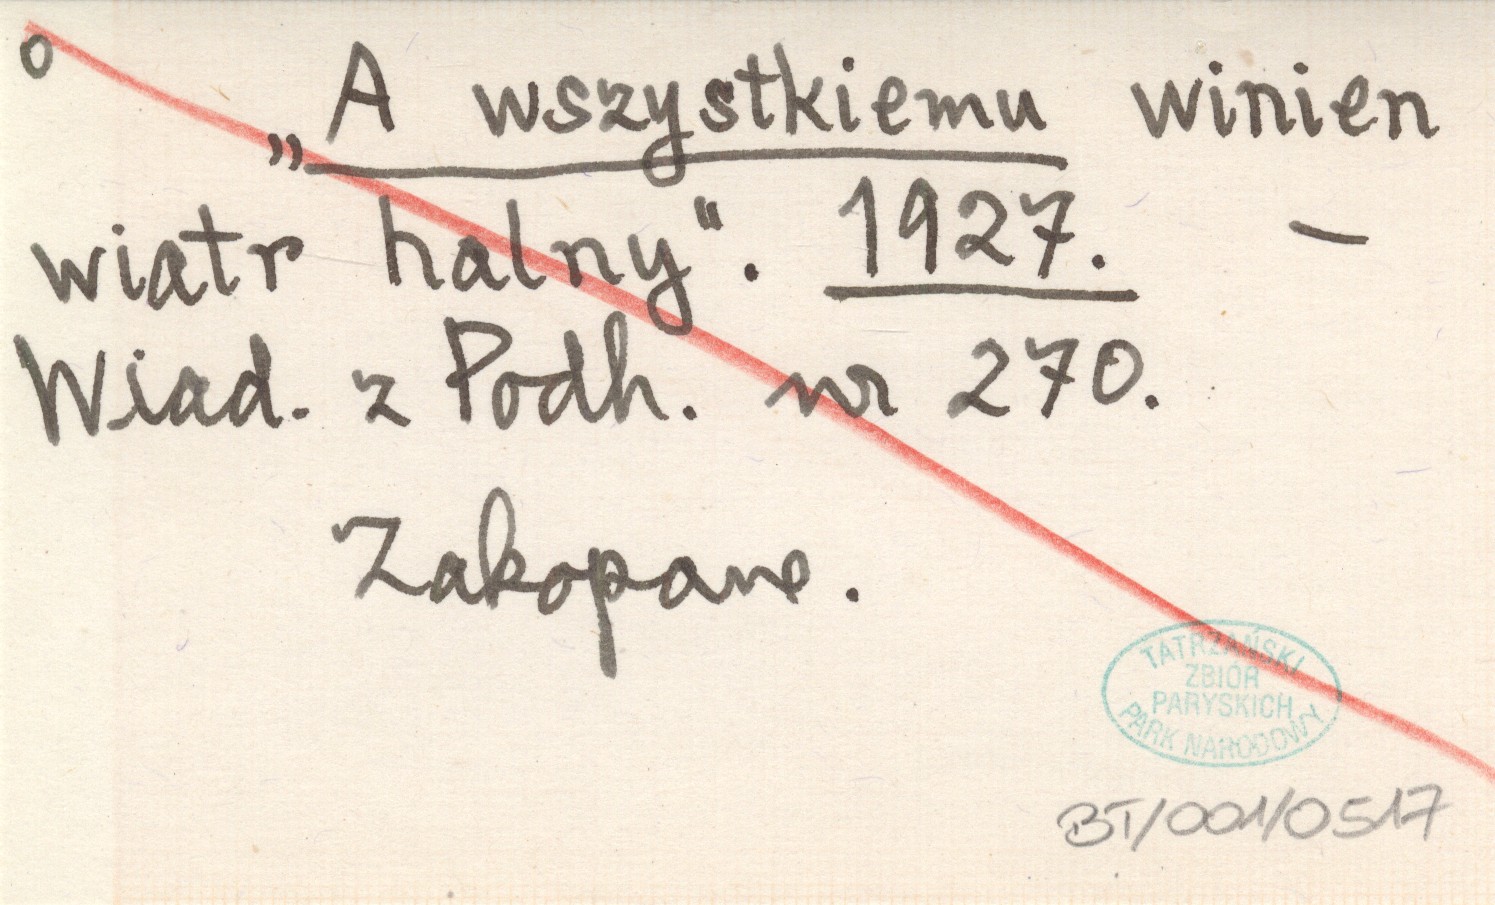 o
„A wszystkiemu winien
wiatr halny". 1927. —
Wiad. z Podh. nr 270.
Zakopane.
TATRZAŃSKI
ZBIÓR
PARYSKICH
PARK NARODOWY
BT/001/0517